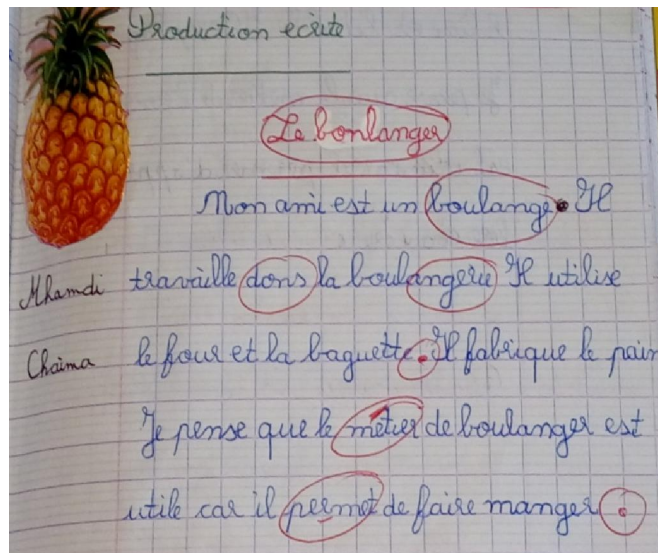 Production ecrite
Le bonlanger
Mon ami est un boulange. Il
Mhamdi travaille dons la boulangerie Il utilise
Chaima le four et la baguette. Il fabrique le pain
Je pense que le métier de boulanger est
utile car il permet de faire manger.